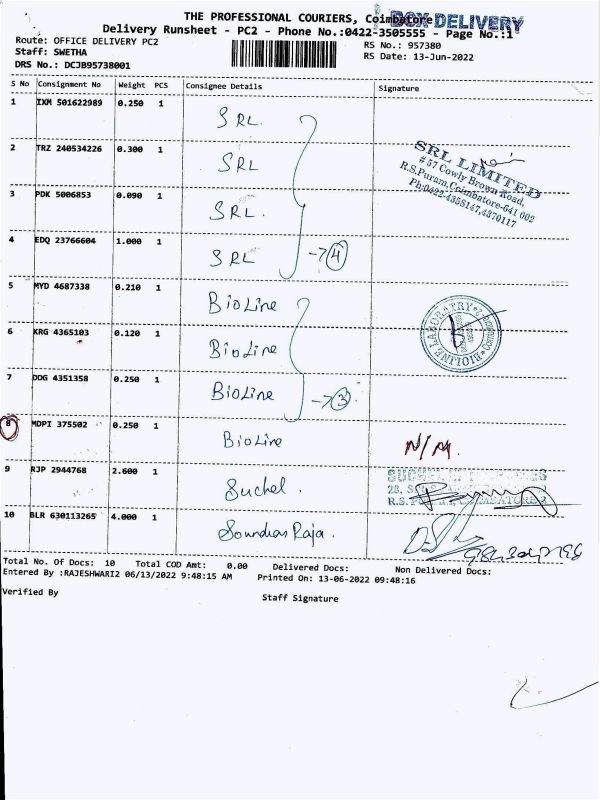 BOX DELIVERY
THE PROFESSIONAL COURIERS, Coimbatore
Delivery Runsheet - PC2 - Phone No.:0422-3505555 - Page No.:1
Route: OFFICE DELIVERY PC2
RS No.: 957380
Staff: SWETHA
RS Date: 13-Jun-2022
DRS No.: DCJB95738001
S No Consignment No Weight PCS Consignee Details Signature
1 IXM 501622989 0.250 1 SRL
2 TRZ 240534226 0.300 1 SRL
3 PDK 5006853 0.090 1 SRL.
4 EDQ 23766604 1.000 1 SRL → 4
SRL LIMITED
# 57 Cowly Brown Road,
R.S.Puram, Coimbatore-641 002
Ph:0422-4358147,4370117
5 MYD 4687338 0.210 1 BioLine
6 KRG 4365103 0.120 1 BioLine
7 DDG 4351358 0.250 1 BioLine → 3
BIOLINE LABORATRY
8 MDPI 375502 0.250 1 BioLine N/M.
9 RJP 2944768 2.600 1 Suchel.
R.S. COIMBATORE
10 BLR 630113265 4.000 1 Soundras Raja.
Total No. Of Docs: 10 Total COD Amt: 0.00 Delivered Docs: Non Delivered Docs:
Entered By :RAJESHWARI2 06/13/2022 9:48:15 AM Printed On: 13-06-2022 09:48:16
Verified By Staff Signature